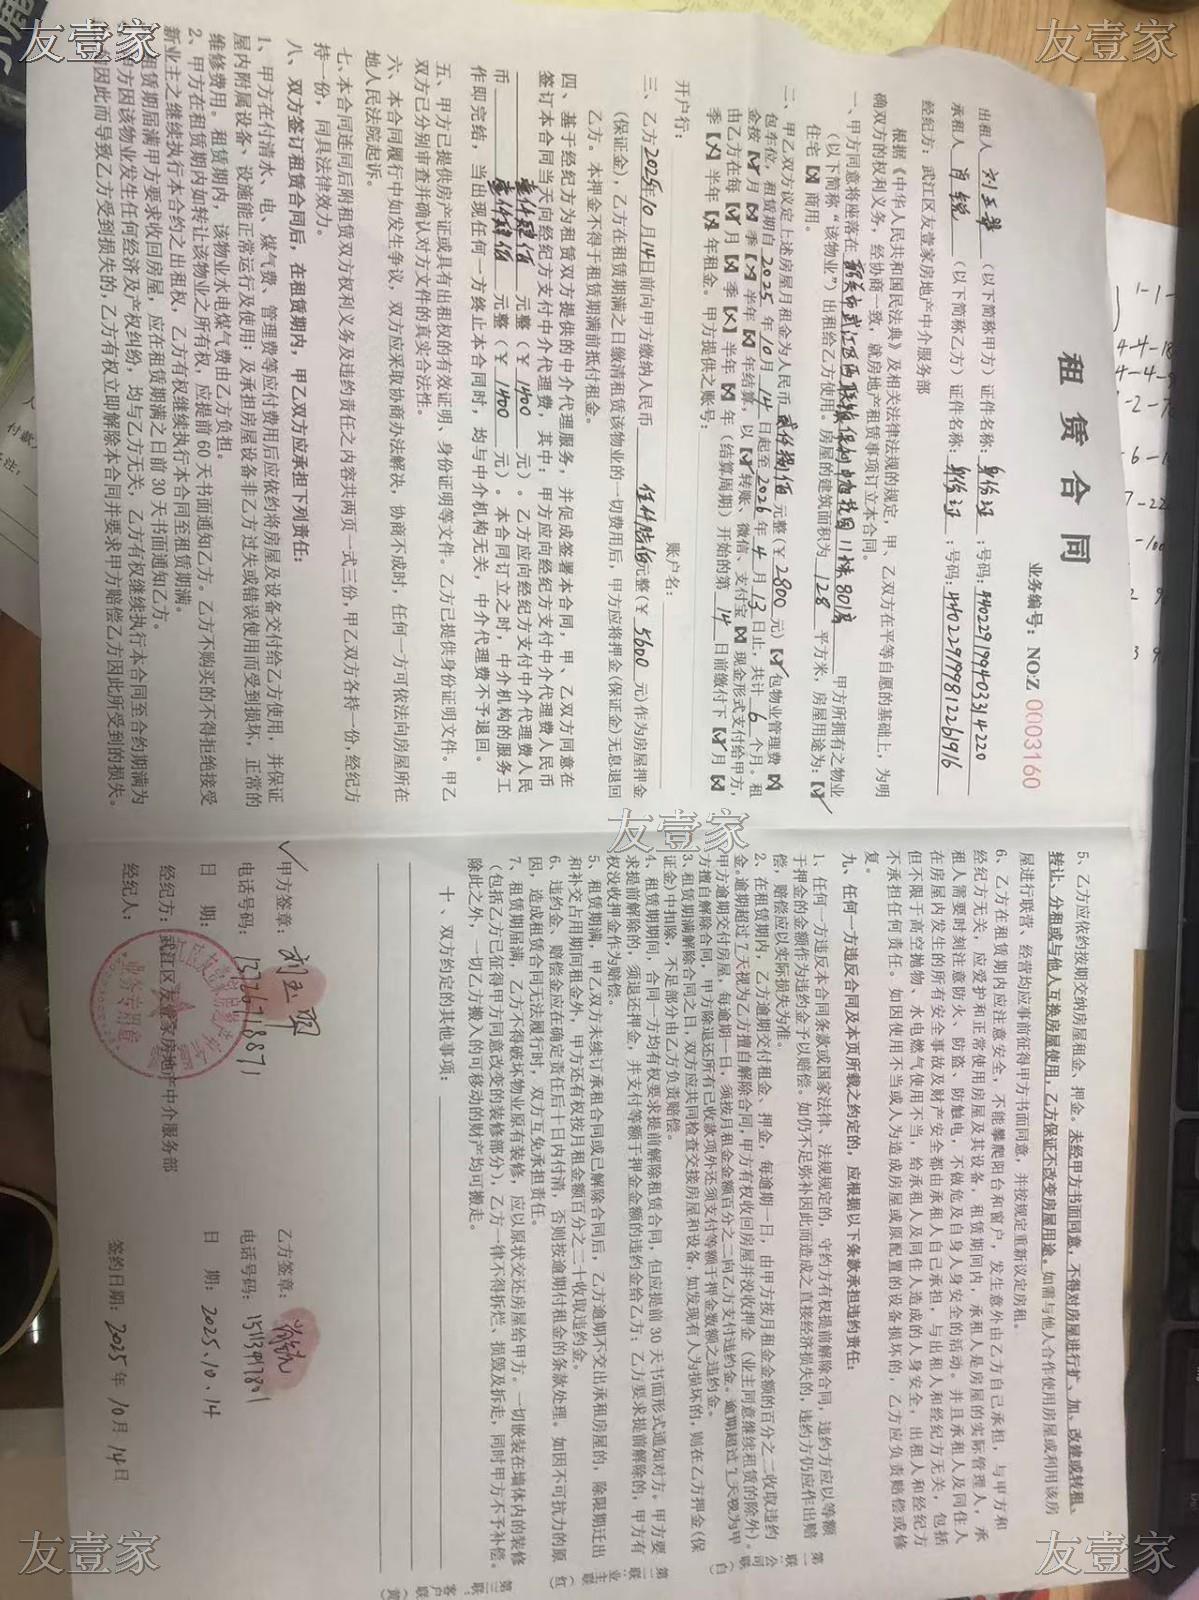 租赁合同
业务编号：NO:Z 0003160
出租人 （以下简称甲方）证件名称：身份证；号码：440229199403314220
承租人 （以下简称乙方）证件名称：身份证；号码：440229199812261916
经纪方：武江区友壹家房地产中介服务部
根据《中华人民共和国民法典》及相关法律法规的规定，甲、乙双方在平等自愿的基础上，为明
确双方的权利义务，经协商一致，就房地产租赁事项订立本合同。
一、甲方同意将座落在 韶关市武江区西联镇保利中宸花园11栋801房 甲方所拥有之物业
（以下简称“该物业”）出租给乙方使用。房屋的建筑面积为 128 平方米，房屋用途为：【✓】
住宅【✗】商用。
二、甲乙双方议定上述房屋月租金为人民币 贰仟捌佰 元整（￥2800元）【✓】包物业管理费【✗】
包车位，租赁期自 2025 年 10 月 14 日起至 2026 年 4 月 13 日止，共计 6 个月。租
金按【✓】月【✗】季【✗】半年【✗】年结算，以【✓】转账、微信、支付宝【✗】现金形式支付给甲方，
由乙方在每【✓】月【✗】季【✗】半年【✗】年（结算周期）开始的第 14 日前缴付下【✓】月【✗】
季【✗】半年【✗】年租金。甲方提供之账号：
开户行： 账户名：
三、乙方2025年10月14日前向甲方缴纳人民币 伍仟陆佰元整（￥5600 元）作为房屋押金
（保证金），乙方在租赁期满之日缴清租赁该物业的一切费用后，甲方应将押金（保证金）无息退回
乙方。本押金不得于租赁期满前抵付租金。
四、基于经纪方为租赁双方提供的中介代理服务，并促成签署本合同，甲、乙双方同意在
签订本合同当天向经纪方支付中介代理费，其中：甲方应向经纪方支付中介代理费人民币
壹仟肆佰 元整（￥ 1400 元）。乙方应向经纪方支付中介代理费人民
币 壹仟肆佰 元整（￥ 1400 元）。本合同订立之时，中介机构的服务工
作即完结，当出现任何一方终止本合同时，均与中介机构无关，中介代理费不予退回。
五、甲方已提供房产证或具有出租权的有效证明、身份证明等文件。乙方已提供身份证明文件。甲乙
双方已分别审查并确认对方文件的真实合法性。
六、本合同履行中如发生争议，双方应采取协商办法解决，协商不成时，任何一方可依法向房屋所在
地人民法院起诉。
七、本合同连同后附租赁双方权利义务及违约责任之内容共两页一式三份，甲乙双方各持一份，经纪方
持一份，同具法律效力。
八、双方签订租赁合同后，在租赁期内，甲乙双方应承担下列责任：
1、甲方在付清水、电、煤气费、管理费等应付费用后应依约将房屋及设备交付给乙方使用，并保证
屋内附属设备、设施能正常运行及使用；及承担房屋设备非乙方过失或错误使用而受到损坏，正常的
维修费用。租赁期内，该物业水电煤气费由乙方负担。
2、甲方在租赁期内如转让该物业之所有权，应提前60天书面通知乙方。乙方不购买的不得拒绝接受
新业主之继续执行本合约之出租权，乙方有权继续执行本合同至租赁期满。
租赁期届满甲方要求收回房屋，应在租赁期满之日前30天书面通知乙方。
方因该物业发生任何经济及产权纠纷，均与乙方无关，乙方有权继续执行本合同至合约期满为
因此而导致乙方受到损失的，乙方有权立即解除本合同并要求甲方赔偿乙方因此所受到的损失。
5、乙方应依约按期交纳房屋租金、押金。未经甲方书面同意，不得对房屋进行扩、加、改建或转租、
转让、分租或与他人互换房屋使用，乙方保证不改变房屋用途。如需与他人合作使用房屋或利用该房
屋进行联营、经营均应事前征得甲方书面同意，并按规定重新议定房租。
6、乙方在租赁期内应注意安全，不能攀爬阳台和窗户，发生意外由乙方自己承担，与甲方和
经纪方无关，应爱护和正常使用房屋及其设备，租赁期间内，承租人是房屋的实际管理人，承
租人需要时刻注意防火、防盗、防触电，不做危及自身人身安全的活动。并且承租人及同住人
在房屋内发生的所有安全事故及财产安全都由承租人自己承担，与出租人和经纪方无关，包括
但不限于高空抛物、水电燃气使用不当，给承租人及同住人造成的人身安全，出租人和经纪方
不承担任何责任。如因使用不当或人为造成房屋或原配置的设备损坏的，乙方应负责赔偿或修
复。
九、任何一方违反合同及本页所载之约定的，应根据以下条款承担违约责任：
1、任何一方违反本合同条款或国家法律、法规规定的，守约方有权提前解除合同，违约方应以等额
于押金的金额作为违约金予以赔偿。如仍不足弥补因此而造成之直接经济损失的，违约方仍应作出赔
偿，赔偿应以实际损失为准。
2、在租赁期内，乙方逾期交付租金、押金，每逾期一日，由甲方按月租金金额的百分之二收取违约
金。逾期超过7天视为乙方擅自解除合同，甲方有权收回房屋并没收押金（业主同意继续租赁的除外）。
甲方逾期交付房屋，每逾期一日，须按月租金金额百分之二向乙方支付违约金。逾期超过7天视为甲
方擅自解除合同，甲方除退还所有已收款项外还须支付等额于押金数额之违约金。
3、租赁期满解除合同之日，双方应共同检查交接房屋和设备，如发现有人为损坏的，则在乙方押金（保
证金）中扣除，不足部分由乙方负责赔偿。
4、租赁期期间，合同一方均有权要求提前解除租赁合同，但应提前30天书面形式通知对方。甲方要
求提前解除的，须退还押金，并支付等额于押金金额的违约金给乙方；乙方要求提前解除的，甲方有
权没收押金作为赔偿。
5、租赁期满，甲乙双方未续订承租合同或已解除合同后，乙方逾期不交出承租房屋的，除限期迁出
和补交占用期间租金外，甲方还有权按月租金额百分之二十收取违约金。
6、违约金、赔偿金应在确定责任后十日内付清，否则按逾期付租金的条款处理。如因不可抗力的原
因，造成租赁合同无法履行时，双方互免承担责任。
7、租赁期届满，乙方不得破坏物业原有装修，应以原状交还房屋给甲方。一切嵌装在墙体内的装修
（包括乙方已征得甲方同意改变的装修部分），乙方一律不得拆烂、损毁及拆走，同时甲方不予补偿。
除此之外，一切乙方搬入的可移动的财产均可搬走。
十、双方约定的其他事项：
甲方签章：
乙方签章：
电话号码：13267188871
电话号码：15113917801
日 期：
日 期：2025.10.14
经纪方：武江区友壹家房地产中介服务部
经纪人：
签约日期：2025年10月14日
业务专用章
第一联：公司联（白）
第二联：业主联（红）
第三联：客户联（黄）
友壹家
友壹家
友壹家
友壹家
友壹家